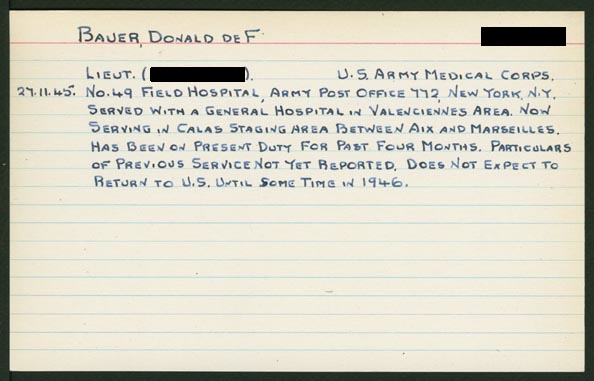 BAUER, DONALD DE F.
LIEUT. ( ). U.S. ARMY MEDICAL CORPS.
27.11.45. NO. 49 FIELD HOSPITAL, ARMY POST OFFICE 772, NEW YORK, N.Y.
SERVED WITH A GENERAL HOSPITAL IN VALENCIENNES AREA. NOW
SERVING IN CALAS STAGING AREA BETWEEN AIX AND MARSEILLES.
HAS BEEN ON PRESENT DUTY FOR PAST FOUR MONTHS. PARTICULARS
OF PREVIOUS SERVICE NOT YET REPORTED. DOES NOT EXPECT TO
RETURN TO U.S. UNTIL SOME TIME IN 1946.